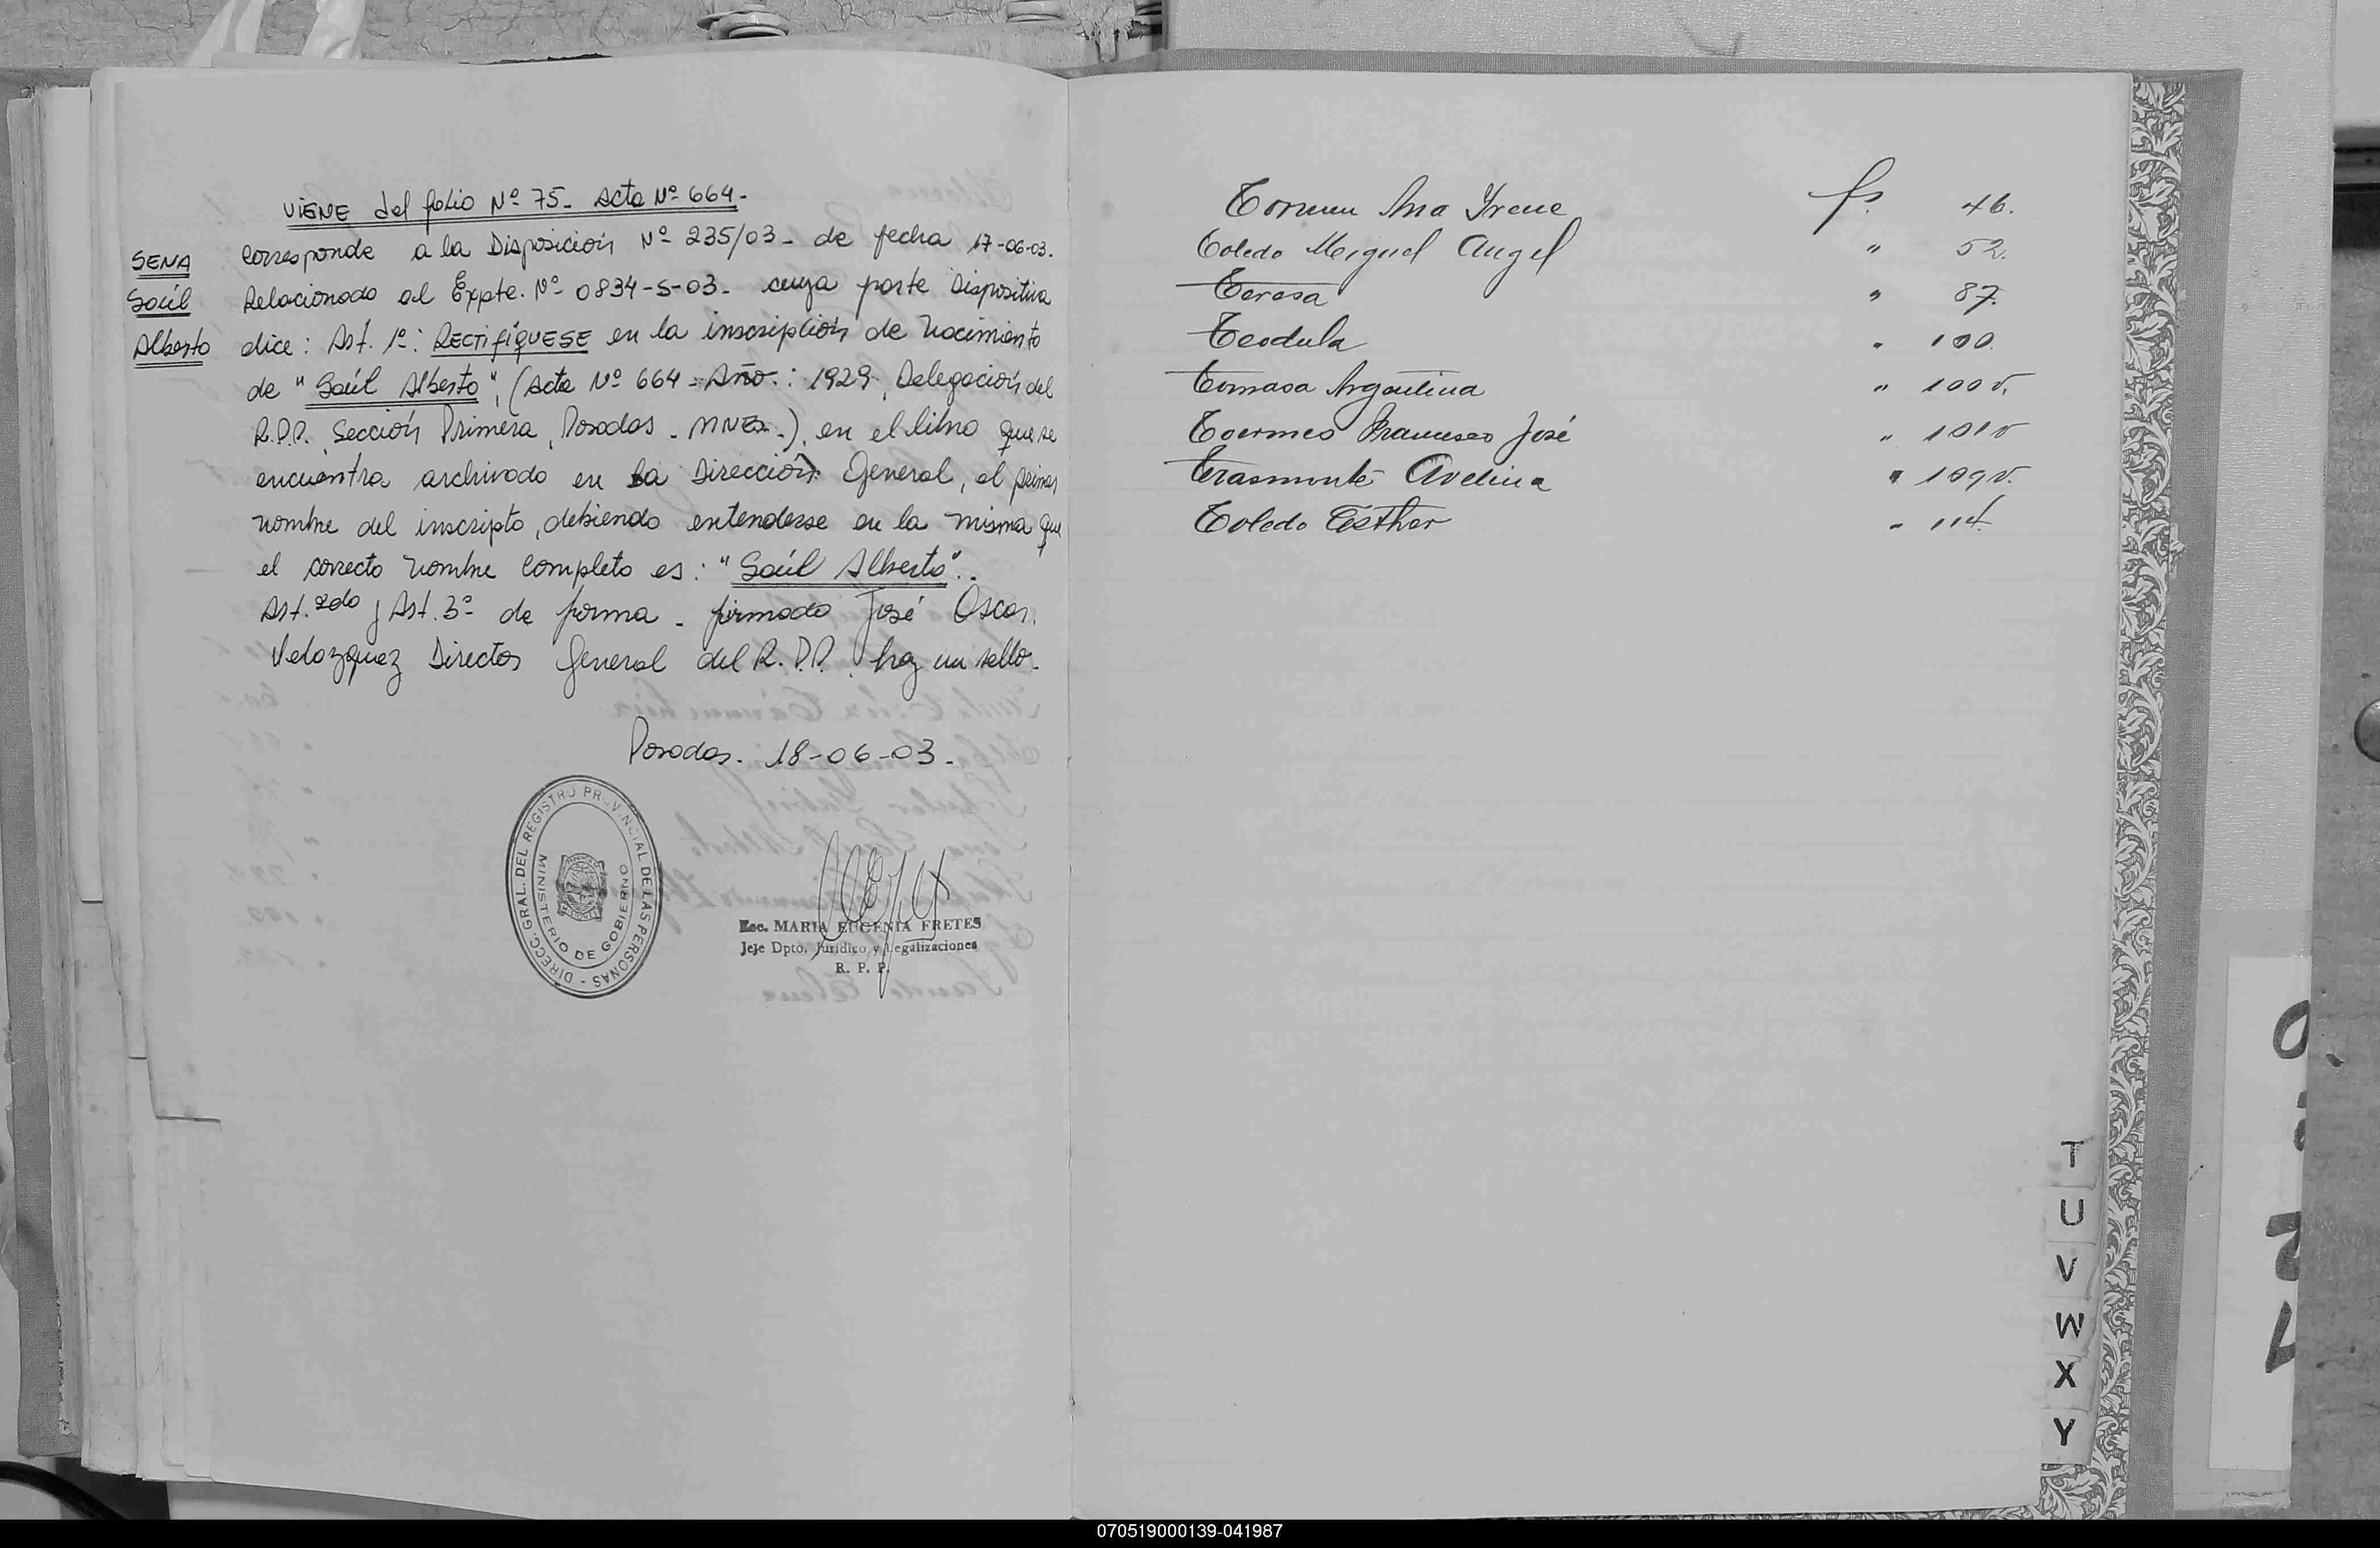 VIENE del folio Nº 75_ Acta Nº 664_
SENA
Saúl
Alberto
Corresponde a la Disposición Nº 235/03_ de fecha 17-06-03.
Relacionado al Expte. Nº 0834-S-03_ cuya parte Dispositiva
dice: Art. 1º: RECTIFÍQUESE en la inscripción de Nacimiento
de "Saúl Alberto", (Acta Nº 664 = Año.: 1929, Delegación del
R.P.P. Sección Primera, Posadas - MNES.), en el libro que se
encuentra archivado en La Dirección General, el primer
nombre del inscripto, debiendo entenderse en la misma que
el correcto nombre completo es: "Saúl Alberto"..
Art. 2do y Art. 3º de forma - firmado José Oscar.
Velazquez Director General del R.P.P. hay un sello_
Posadas. 18-06-03_
DIRECC. GRAL. DEL REGISTRO PROVINCIAL DE LAS PERSONAS -
MINISTERIO DE GOBIERNO
Esc. MARIA EUGENIA FRETES
Jefe Dpto. Jurídico y Legalizaciones
R. P. P.
Ana Yrene fs. 46.
Toledo Miguel Angel " 52.
Teresa " 87.
Teodula " 100.
Tomasa Argentina " 100 v.
Francisco José " 101 v
Trasmonte Avelina " 109 v.
Toledo Esther " 114.
T
U
V
W
X
Y
070519000139-041987